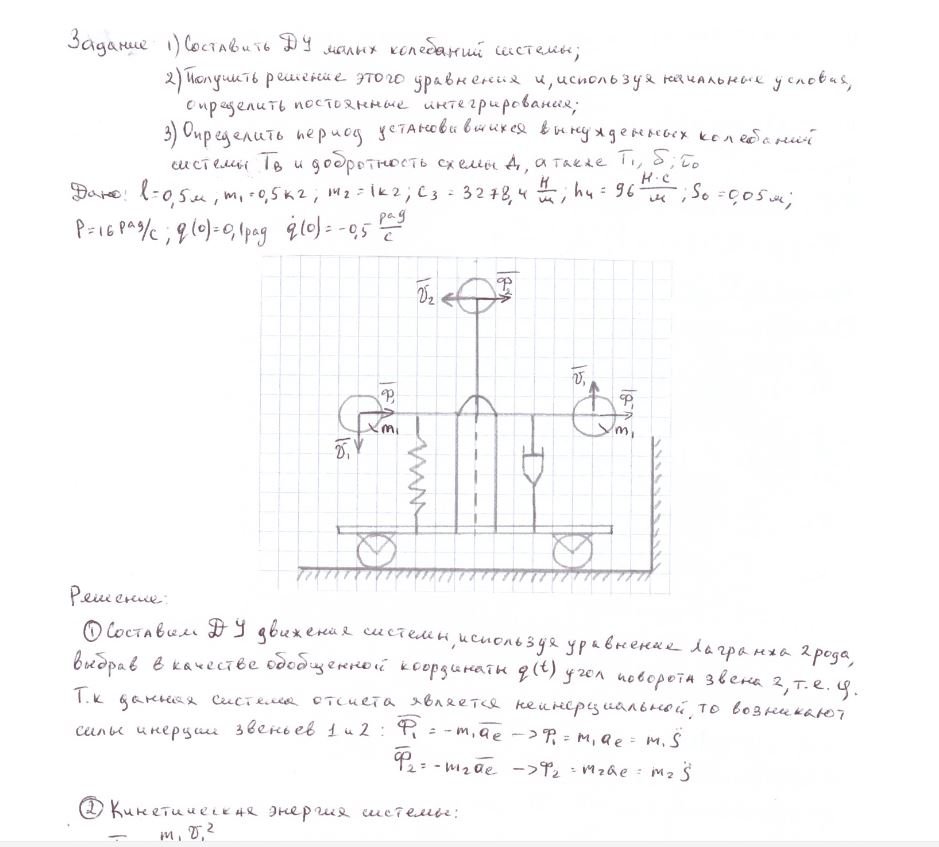 Задание 1) Составить ДУ малых колебаний системы;
2) Получить решение этого уравнения и, используя начальные условия,
определить постоянные интегрирования;
3) Определить период установившихся вынужденных колебаний
системы Tв и добротность схемы Д, а также T₁, δ; τ₀
Дано: l=0,5м, m₁=0,5кг; m₂=1кг; c₃=3278,4 Н/м; h₄=96 Н·с/м; S₀=0,05м;
P=16 рад/с; q(0)=0,1рад q̇(0)=-0,5 рад/с
V̄₂ Ф̄₂
V̄₁ Ф̄₁ m₁
V̄₁ Ф̄₁ m₁
Решение:
① Составим ДУ движения системы, используя уравнение Лагранжа 2 рода,
выбрав в качестве обобщенной координаты q(t) угол поворота звена 2, т.е. φ.
Т.к данная система отсчета является неинерциальной, то возникают
силы инерции звеньев 1 и 2: Ф̄₁ = -m₁āe —> Ф₁ = m₁ae = m₁S̈
Ф̄₂ = -m₂āe —> Ф₂ = m₂ae = m₂S̈
② Кинетическая энергия системы:
m₁V₁²